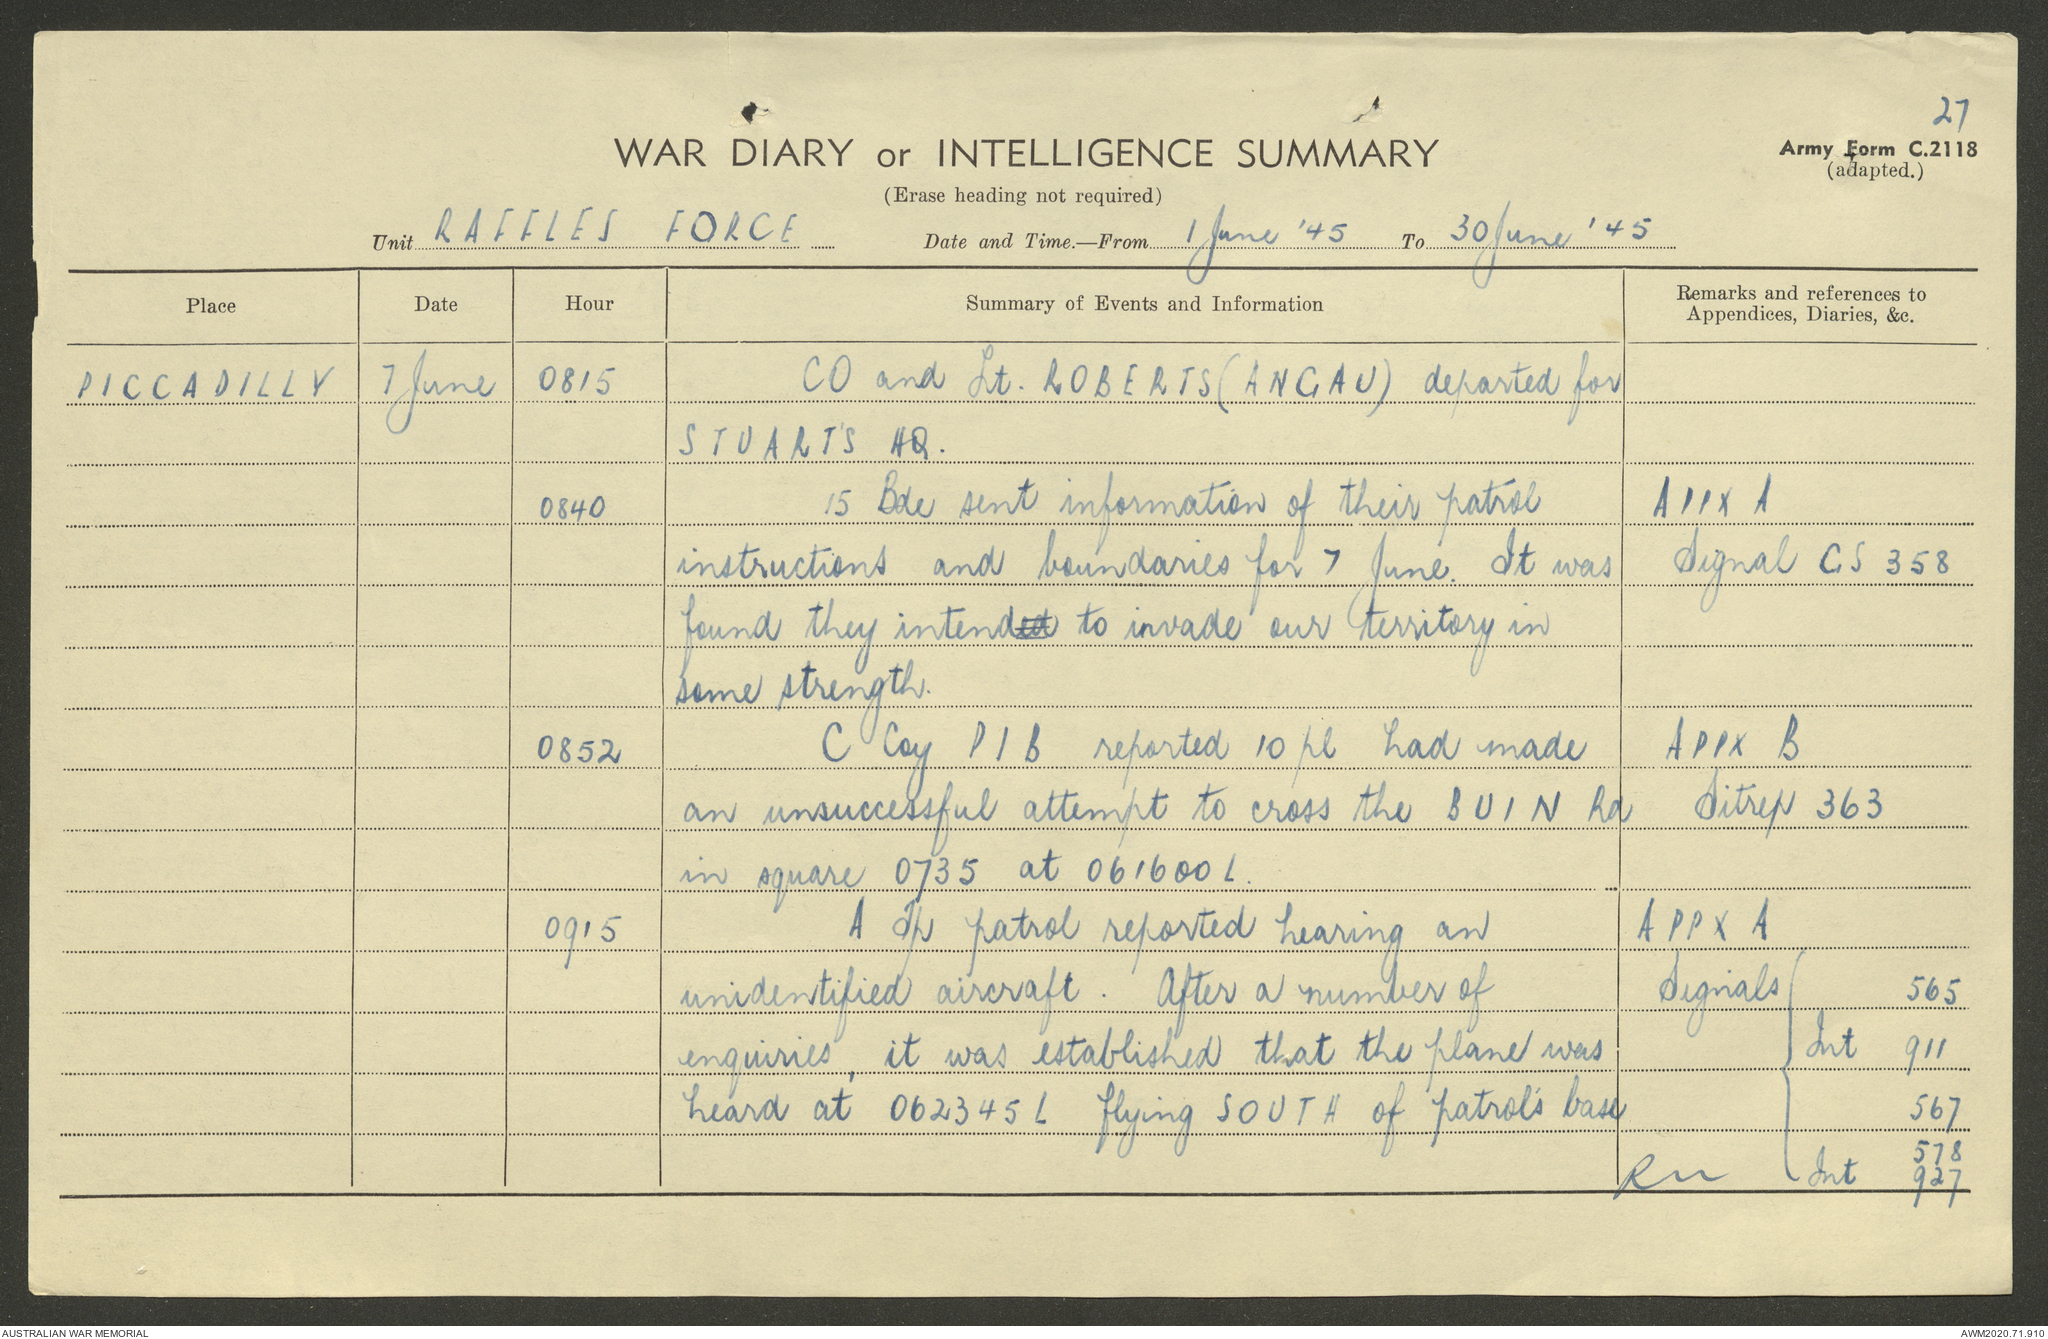 27
WAR DIARY or INTELLIGENCE SUMMARY
Army Form C.2118
(adapted.)
(Erase heading not required)
Unit RAFFLES FORCE Date and Time.—From 1 June '45 To 30 June '45
Place Date Hour Summary of Events and Information Remarks and references to
Appendices, Diaries, &c.
PICCADILLY 7 June 0815 CO and Lt. ROBERTS (ANGAU) departed for
STUART'S HQ.
0840 15 Bde sent information of their patrol APPX A
instructions and boundaries for 7 June. It was Signal GS 358
found they intended to invade our territory in
some strength.
0852 C Coy PIB reported 10 pl had made APPX B
an unsuccessful attempt to cross the BUIN Rd Sitrep 363
in square 0735 at 061600L.
0915 A Tp patrol reported hearing an APPX A
unidentified aircraft. After a number of Signals 565
enquiries, it was established that the plane was Int 911
heard at 062345L flying SOUTH of patrol's base 567
578
Int 927
AUSTRALIAN WAR MEMORIAL AWM2020.71.910